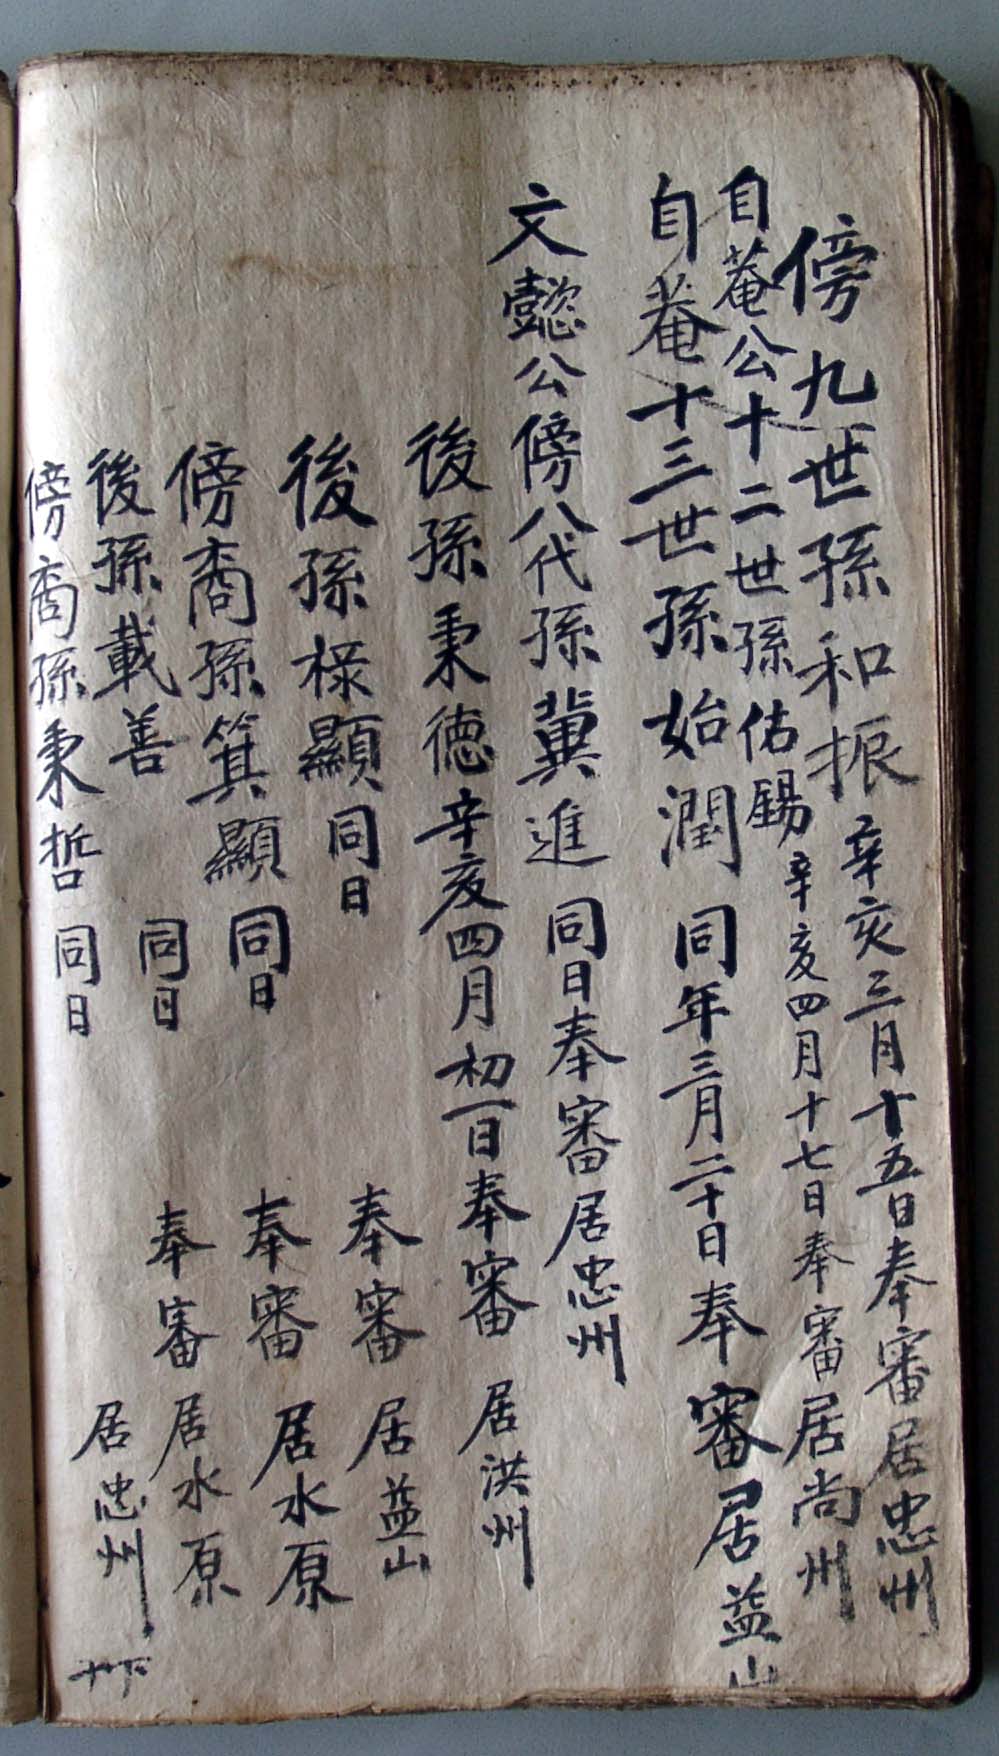 傍九世孫和振辛亥三月十五日奉審居忠州
自菴公十二世孫佑錫辛亥四月十七日奉審居尚州
自菴十三世孫始潤同年三月二十日奉審居益山
文懿公傍八代孫冀進同日奉審居忠州
後孫秉德辛亥四月初一日奉審居洪州
後孫祿顯同日奉審居益山
傍裔孫箕顯同日奉審居水原
後孫載善同日奉審居水原
傍裔孫秉哲同日居忠州